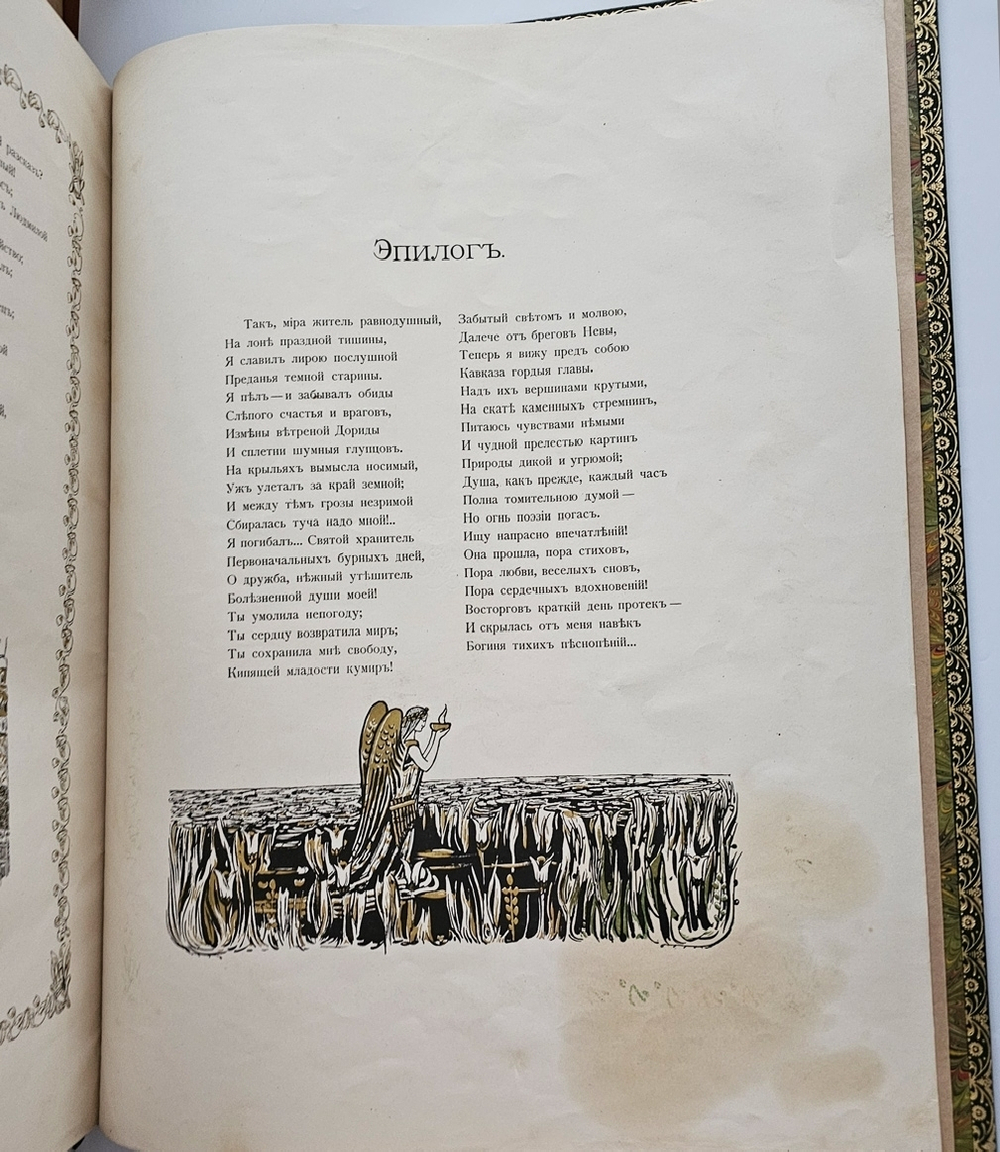 й разсказъ?
Людмилой
Эпилогъ.
Такъ, міра житель равнодушный,
На лонѣ праздной тишины,
Я славилъ лирою послушной
Преданья темной старины.
Я пѣлъ — и забывалъ обиды
Слѣпого счастья и враговъ,
Измѣны вѣтреной Дориды
И сплетни шумныя глупцовъ.
На крыльяхъ вымысла носимый,
Ужъ улеталъ за край земной;
И между тѣмъ грозы незримой
Сбиралась туча надо мной!..
Я погибалъ... Святой хранитель
Первоначальныхъ бурныхъ дней,
О дружба, нѣжный утѣшитель
Болѣзненной души моей!
Ты умолила непогоду;
Ты сердцу возвратила миръ;
Ты сохранила мнѣ свободу,
Кипящей младости кумиръ!
Забытый свѣтомъ и молвою,
Далече отъ бреговъ Невы,
Теперь я вижу предъ собою
Кавказа гордыя главы.
Надъ ихъ вершинами крутыми,
На скатѣ каменныхъ стремнинъ,
Питаюсь чувствами нѣмыми
И чудной прелестью картинъ
Природы дикой и угрюмой;
Душа, какъ прежде, каждый часъ
Полна томительною думой —
Но огнь поэзіи погасъ.
Ищу напрасно впечатлѣній!
Она прошла, пора стиховъ,
Пора любви, веселыхъ сновъ,
Пора сердечныхъ вдохновеній!
Восторговъ краткій день протекъ —
И скрылась отъ меня навѣкъ
Богиня тихихъ пѣснопѣній...